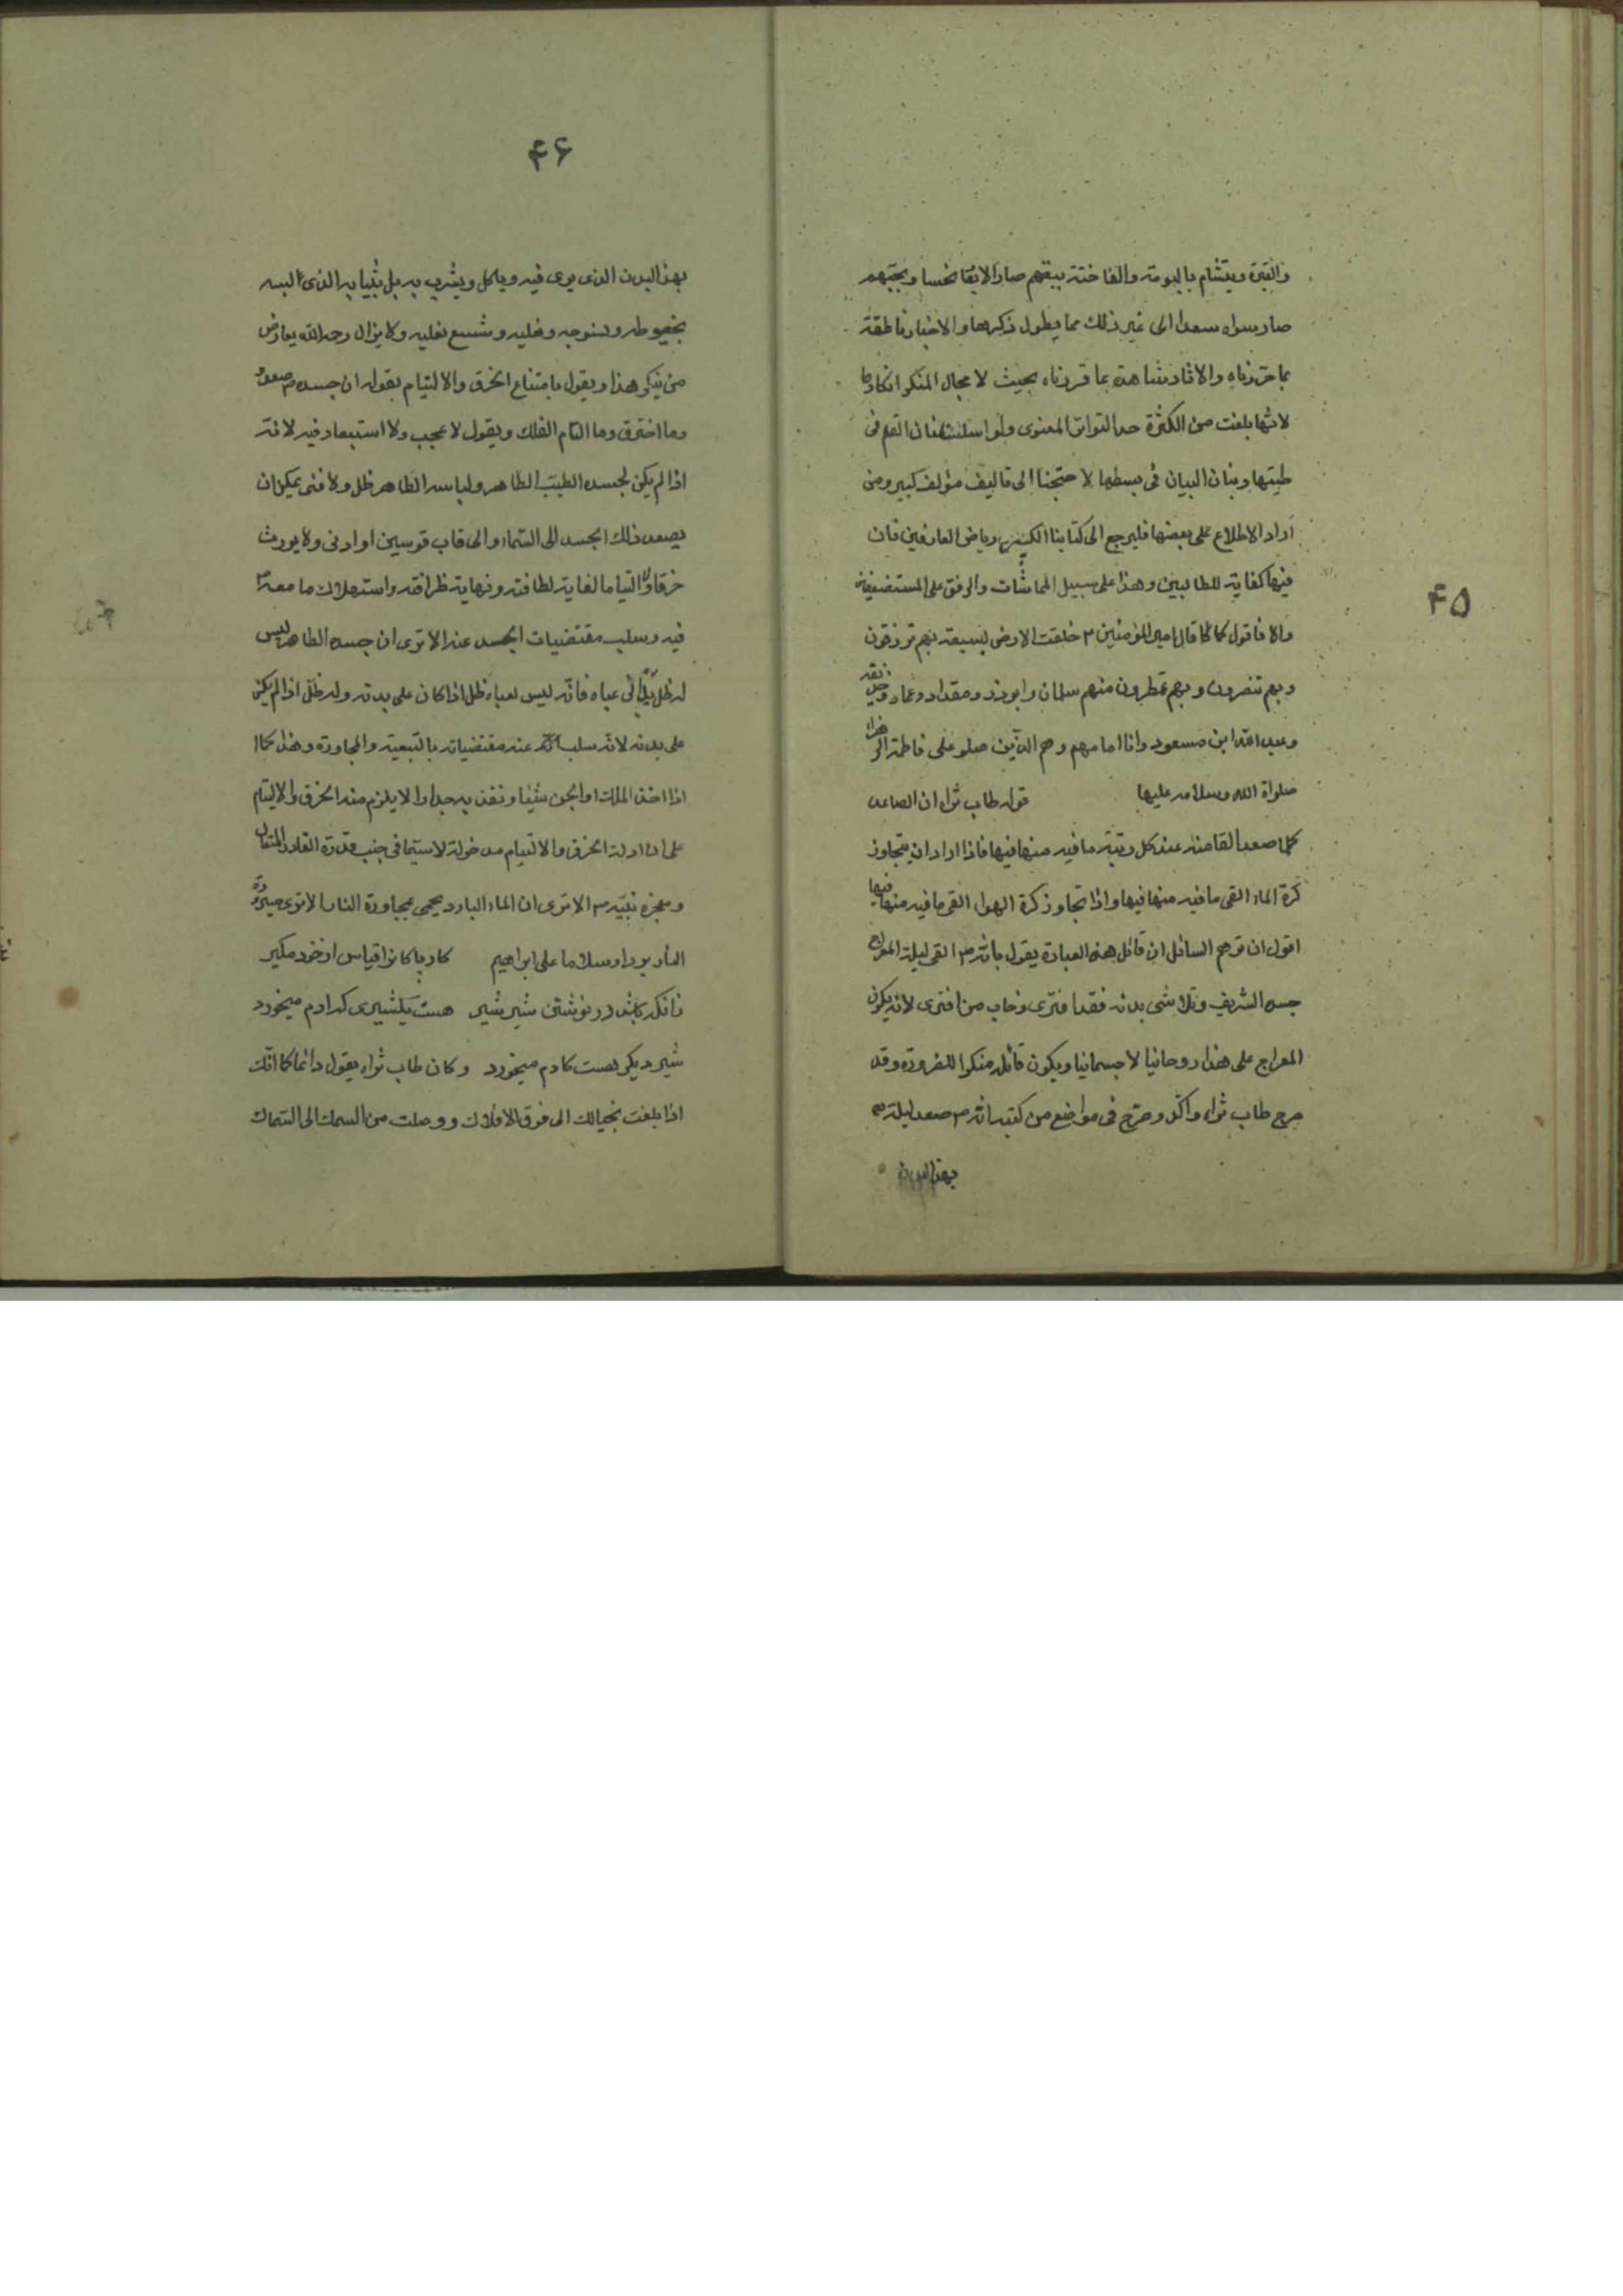 ۴۵
والقبرة ويتشام بالبومة والفاختة ببغضهم صار الاربعا نحسا وبحبهم
صار سواه سعدا الى غير ذلك مما يطول ذكرها والاخبار ناطقة
بما حررناه والاثار شاهدة بما قررناه بحيث لا مجال للمنكر انكارها
لانها بلغت من الكثرة حد التواتر المعنوى ولو اسلنا عنان القلم فى
طيتها وبنان البيان فى بسطها لاحتجنا الى تاليف مؤلف كبير ومن
اراد الاطلاع على بعضها فليرجع الى كتابنا الكبير رياض العارفين فان
فيها كفاية للطالبين وهذا على سبيل المماشات والرفق على المستضعفين
والا فاقول كما قال امير المؤمنين ع خلقت الارض لسبعة بهم ترزقون
وبهم تنصرون وبهم تمطرون منهم سلمان وابوذر ومقداد وعمار وحذيفة
وعبد الله ابن مسعود وانا امامهم وهم الذين صلو على فاطمة الزهراء
صلواة الله وسلامه عليها قوله طاب ثراه ان الصاعد
كلما صعد القا منه عند كل رتبة ما فيه منها فيها فاذا اراد ان يتجاوز
كرة الماء القى ما فيه منها فيها واذا تجاوز كرة الهواء القى ما فيه منها فيها
اقول ان توهم السائل ان قائل هذه العبارة يقول بانه ص القى ليلة المعراج
جسده الشريف وتلاشى بدنه فقد افترى وخاب من افترى لانه يكون
المعراج على هذا روحانيا لا جسمانيا ويكون قائله منكرا للضرورة وقد
صرح طاب ثراه واكد وصرح فى مواضع من كتبه انه ص صعد ليلة
بهذا البدن
۴۶
بهذا البدن الذى يرى فيه وياكل ويشرب به بل بثيابه الذى البسه
بخيوطه و ونعليه وشسع نعليه ولا يزال رحمه الله يعارض
من ينكر هذا ويقول بامتناع الخرق والالتيام بقوله ان جسده ص صعد
وما اخترق وما التام الفلك ويقول لا عجب ولا استبعاد فيه لانه
اذا لم يكن لجسده الطيب الطاهر ولباسه الطاهر ظل ولا فئى يمكن ان
يصعد ذلك الجسد الى السماء والى قاب قوسين او ادنى ولا يورث
خرقا ولا التياما لغاية لطافته ونهاية ظرافته واستهلاك ما معه
فيه وسلب مقتضيات الجسد عنه الا ترى ان جسده الطاهر ليس
له ظل عباه فانه ليس لعباه ظل اذا كان على بدنه وله ظل اذا لم يكن
على بدنه لانه سلب عنه مقتضياته بالتبعية والمجاورة وهذا كما
اذا اخذ الملك او الجن شيئا ونفذ به جدارا لا يلزم منه الخرق والالتيام
على ان ادلة الخرق والالتيام مدخولة لاسيما فى جنب قدرة القادر المتعال
ومعجزة نبيه ص الا ترى ان الماء البارد يحمى بمجاورة النار الا ترى صيرورة
النار بردا وسلاما على ابراهيم كار پاكانرا قياس از خود مگير
زانكه باشد در نوشتن شير شير هست يكشيرى كه ادم ميخورد
شير ديگر هست كادم ميخورد وكان طاب ثراه يقول دائما كما انك
اذا بلغت بخيالك الى فوق الافلاك ووصلت من السمك الى السماك